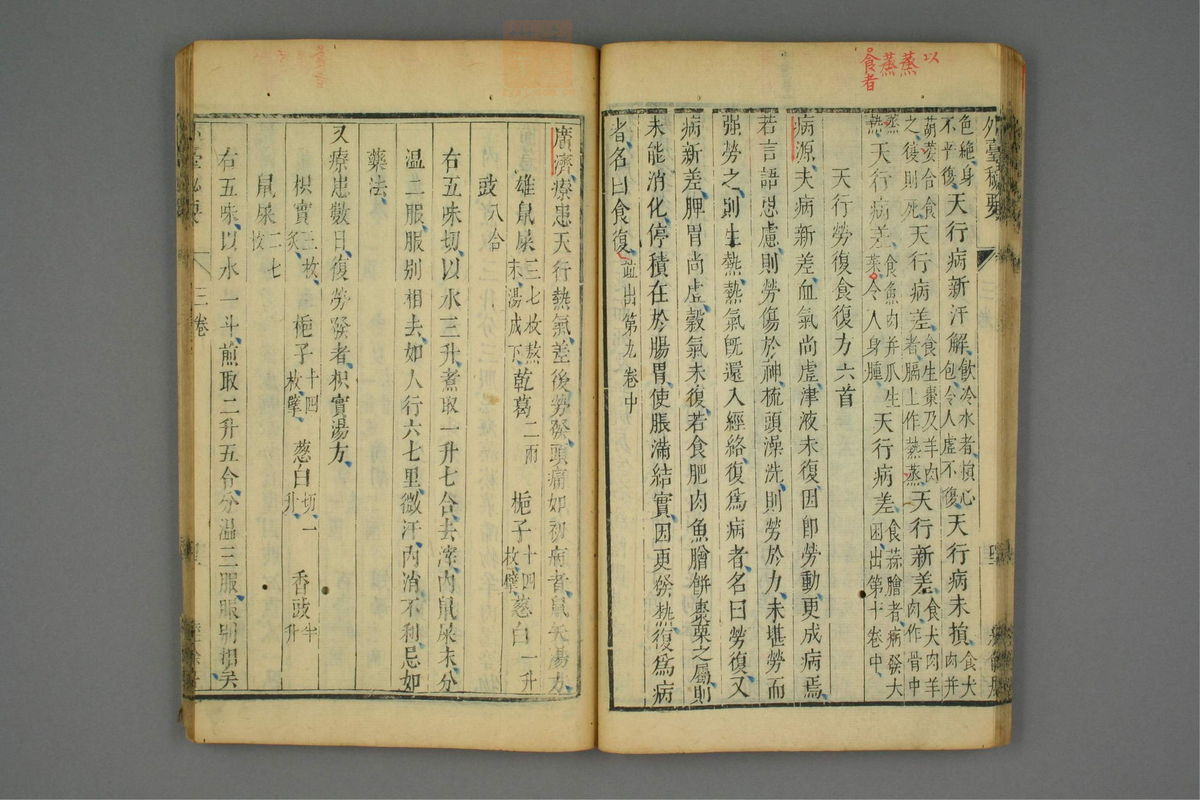 以
蒸
蒸
食者
外臺秘要
色絶身不平復天行病新汗解飲冷水者損心包令人虛不復天行病未損食犬肉并
葫荽合食之復則死天行病差食生棗及羊肉者膈上作蒸蒸天行新差食犬肉羊肉作骨中
蒸熱天行病差食魚肉并瓜生菜令人身腫天行病差食蒜膾者病發大困出第十卷中
天行勞復食復方六首
病源夫病新差血氣尚虛津液未復因即勞動更成病焉
若言語思慮則勞傷於神梳頭澡洗則勞於力未堪勞而
强勞之則生熱熱氣旣還入經絡復爲病者名曰勞復又
病新差脾胃尚虛穀氣未復若食肥肉魚膾餅棗栗之屬則
未能消化停積在於腸胃使脹滿結實因更發熱復爲病
者名曰食復並出第九卷中
廣濟療患天行熱氣差後勞發頭痛如初病者鼠矢湯方
雄鼠屎三七枚蒸末湯成下乾葛二兩梔子十四枚擘葱白一升
豉八合
右五味切以水三升煮取一升七合去滓内鼠屎末分
温二服服別相去如人行六七里微汗内消不利忌如
藥法
又療患數日復勞發者枳實湯方
枳實三枚炙梔子十四枚擘葱白切一升香豉半升
鼠屎二七枚
右五味以水一斗煎取二升五合分温三服服別相去
三卷